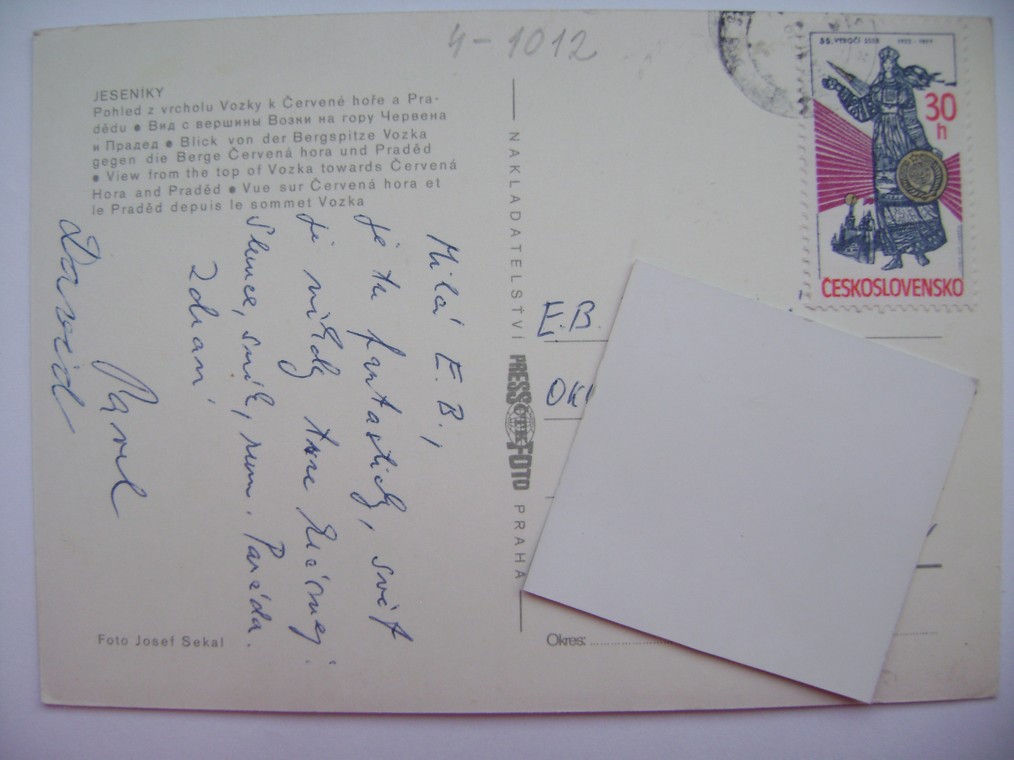 4-1012
JESENÍKY
Pohled z vrcholu Vozky k Červené hoře a Pra-
dědu ● Вид с вершины Возки на гору Червена
и Прадед ● Blick von der Bergspitze Vozka
gegen die Berge Červená hora und Praděd
● View from the top of Vozka towards Červená
Hora and Praděd ● Vue sur Červená hora et
le Praděd depuis le sommet Vozka
Milá E. B.,
je tu fantasticky, svět
je nikdy
Slunce, sníh, rum. Paráda.
Zdraví
Pavel
David
Foto Josef Sekal
NAKLADATELSTVÍ PRESSFOTO PRAHA
55. VÝROČÍ SSSR 1922-1977
30
h
ČESKOSLOVENSKO
E.B.
Okres: